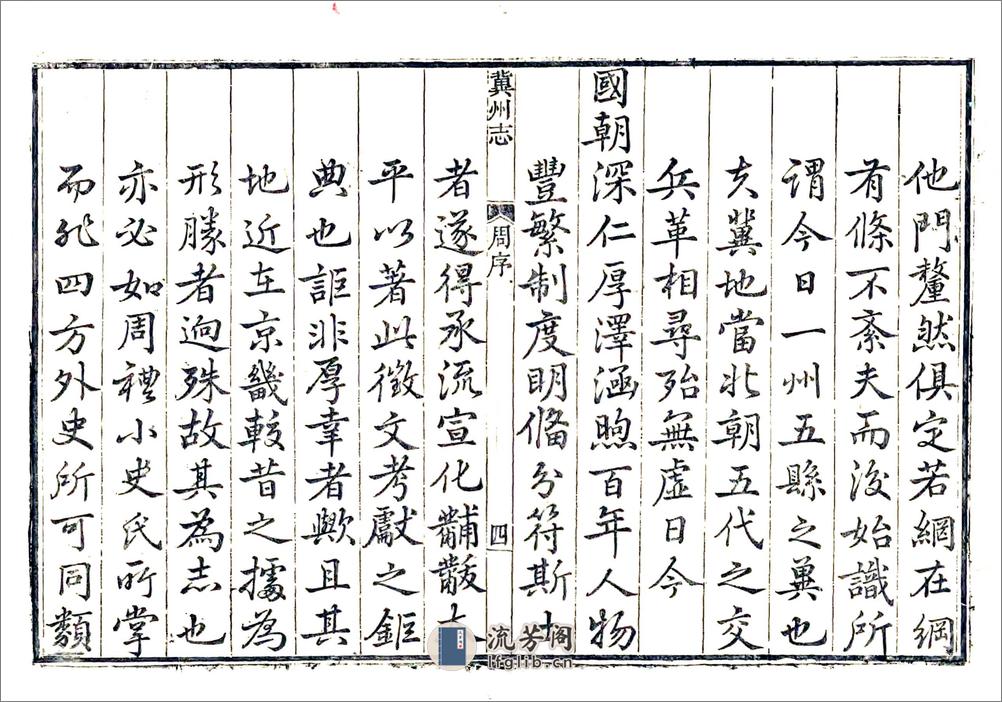 他門釐然俱定若網在綱
有條不紊夫而後始識所
謂今日一州五縣之冀也
夫冀地當北朝五代之交
兵革相尋殆無虛日今
國朝深仁厚澤涵煦百年人物
豐繁制度明備分符斯土
冀州志 周序 四
者遂得承流宣化黼黻太
平以著此徵文考獻之鉅
典也詎非厚幸者歟且其
地近在京畿較昔之據為
形勝者迥殊故其為志也
亦必如周禮小史氏所掌
而非四方外史所可同類
流芳阁
lfglib.cn